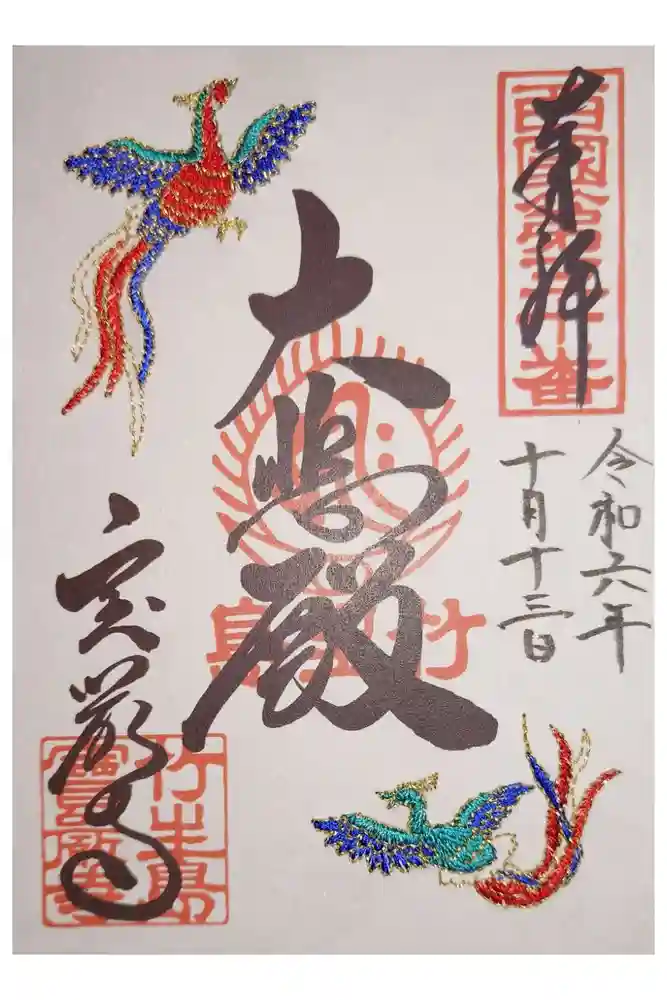 奉拝
西國第三十番
令和六年
十月十三日
大悲殿
竹生島
宝厳寺
竹生島寶嚴寺